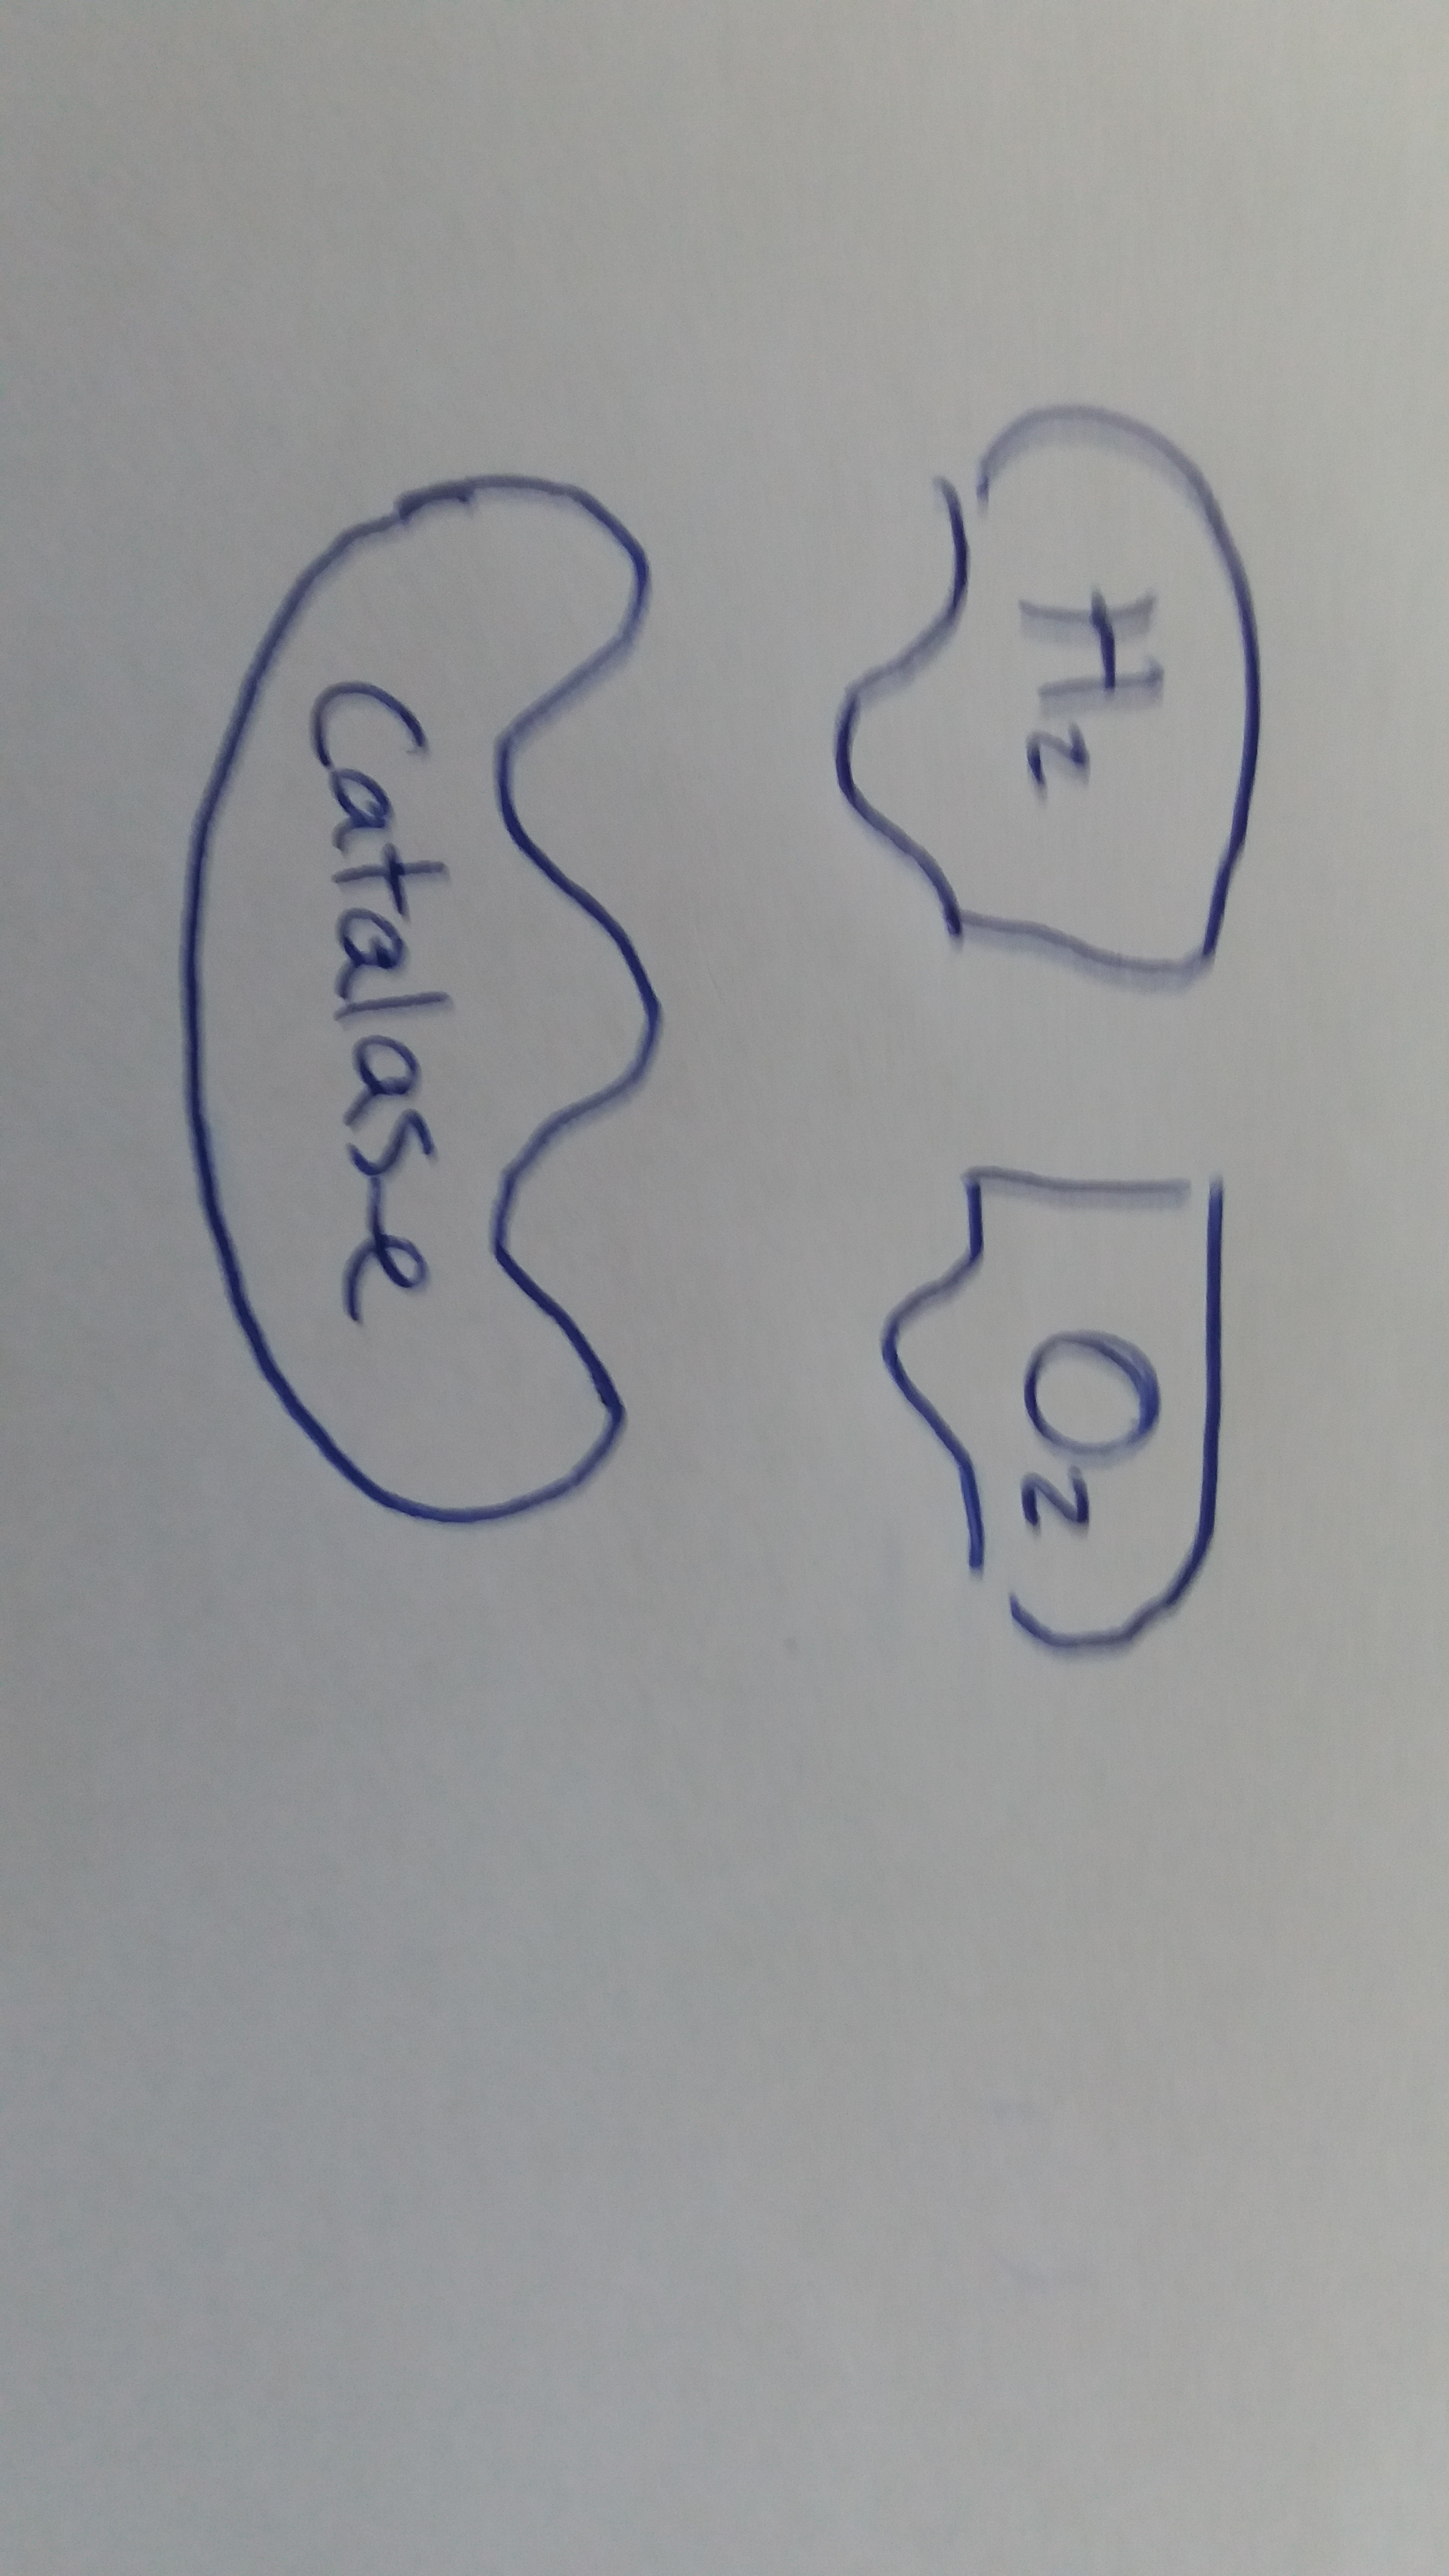 H₂ O₂
Catalase